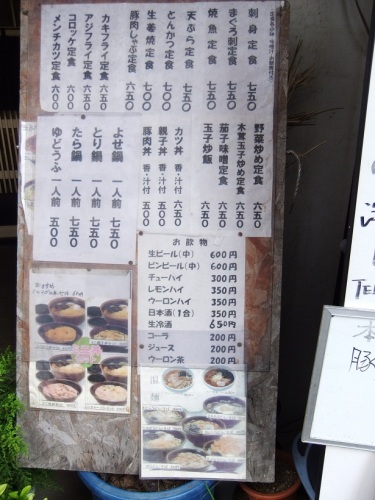 刺身定食 七五〇
まぐろ刺定食 七五〇
焼魚定食 七〇〇
天ぷら定食 七五〇
とんかつ定食 七〇〇
生姜焼定食 七〇〇
豚肉しゃぶ定食 六五〇
カキフライ定食 六五〇
アジフライ定食 六五〇
コロッケ定食 六〇〇
メンチカツ定食 六〇〇
野菜炒め定食 六五〇
木茸玉子炒め定食 六五〇
茄子味噌定食 六五〇
玉子炒飯 六五〇
カツ丼 香・汁付 六五〇
親子丼 香・汁付 五五〇
豚肉丼 香・汁付 五〇〇
よせ鍋 一人前 七五〇
とり鍋 一人前 七五〇
たら鍋 一人前 七五〇
ゆどうふ 一人前 五〇〇
お飲物
生ビール(中) 600円
ビンビール(中) 600円
チューハイ 300円
レモンハイ 350円
ウーロンハイ 350円
日本酒(1合) 350円
生冷酒 650円
コーラ 200円
ジュース 200円
ウーロン茶 200円
温麺
豚